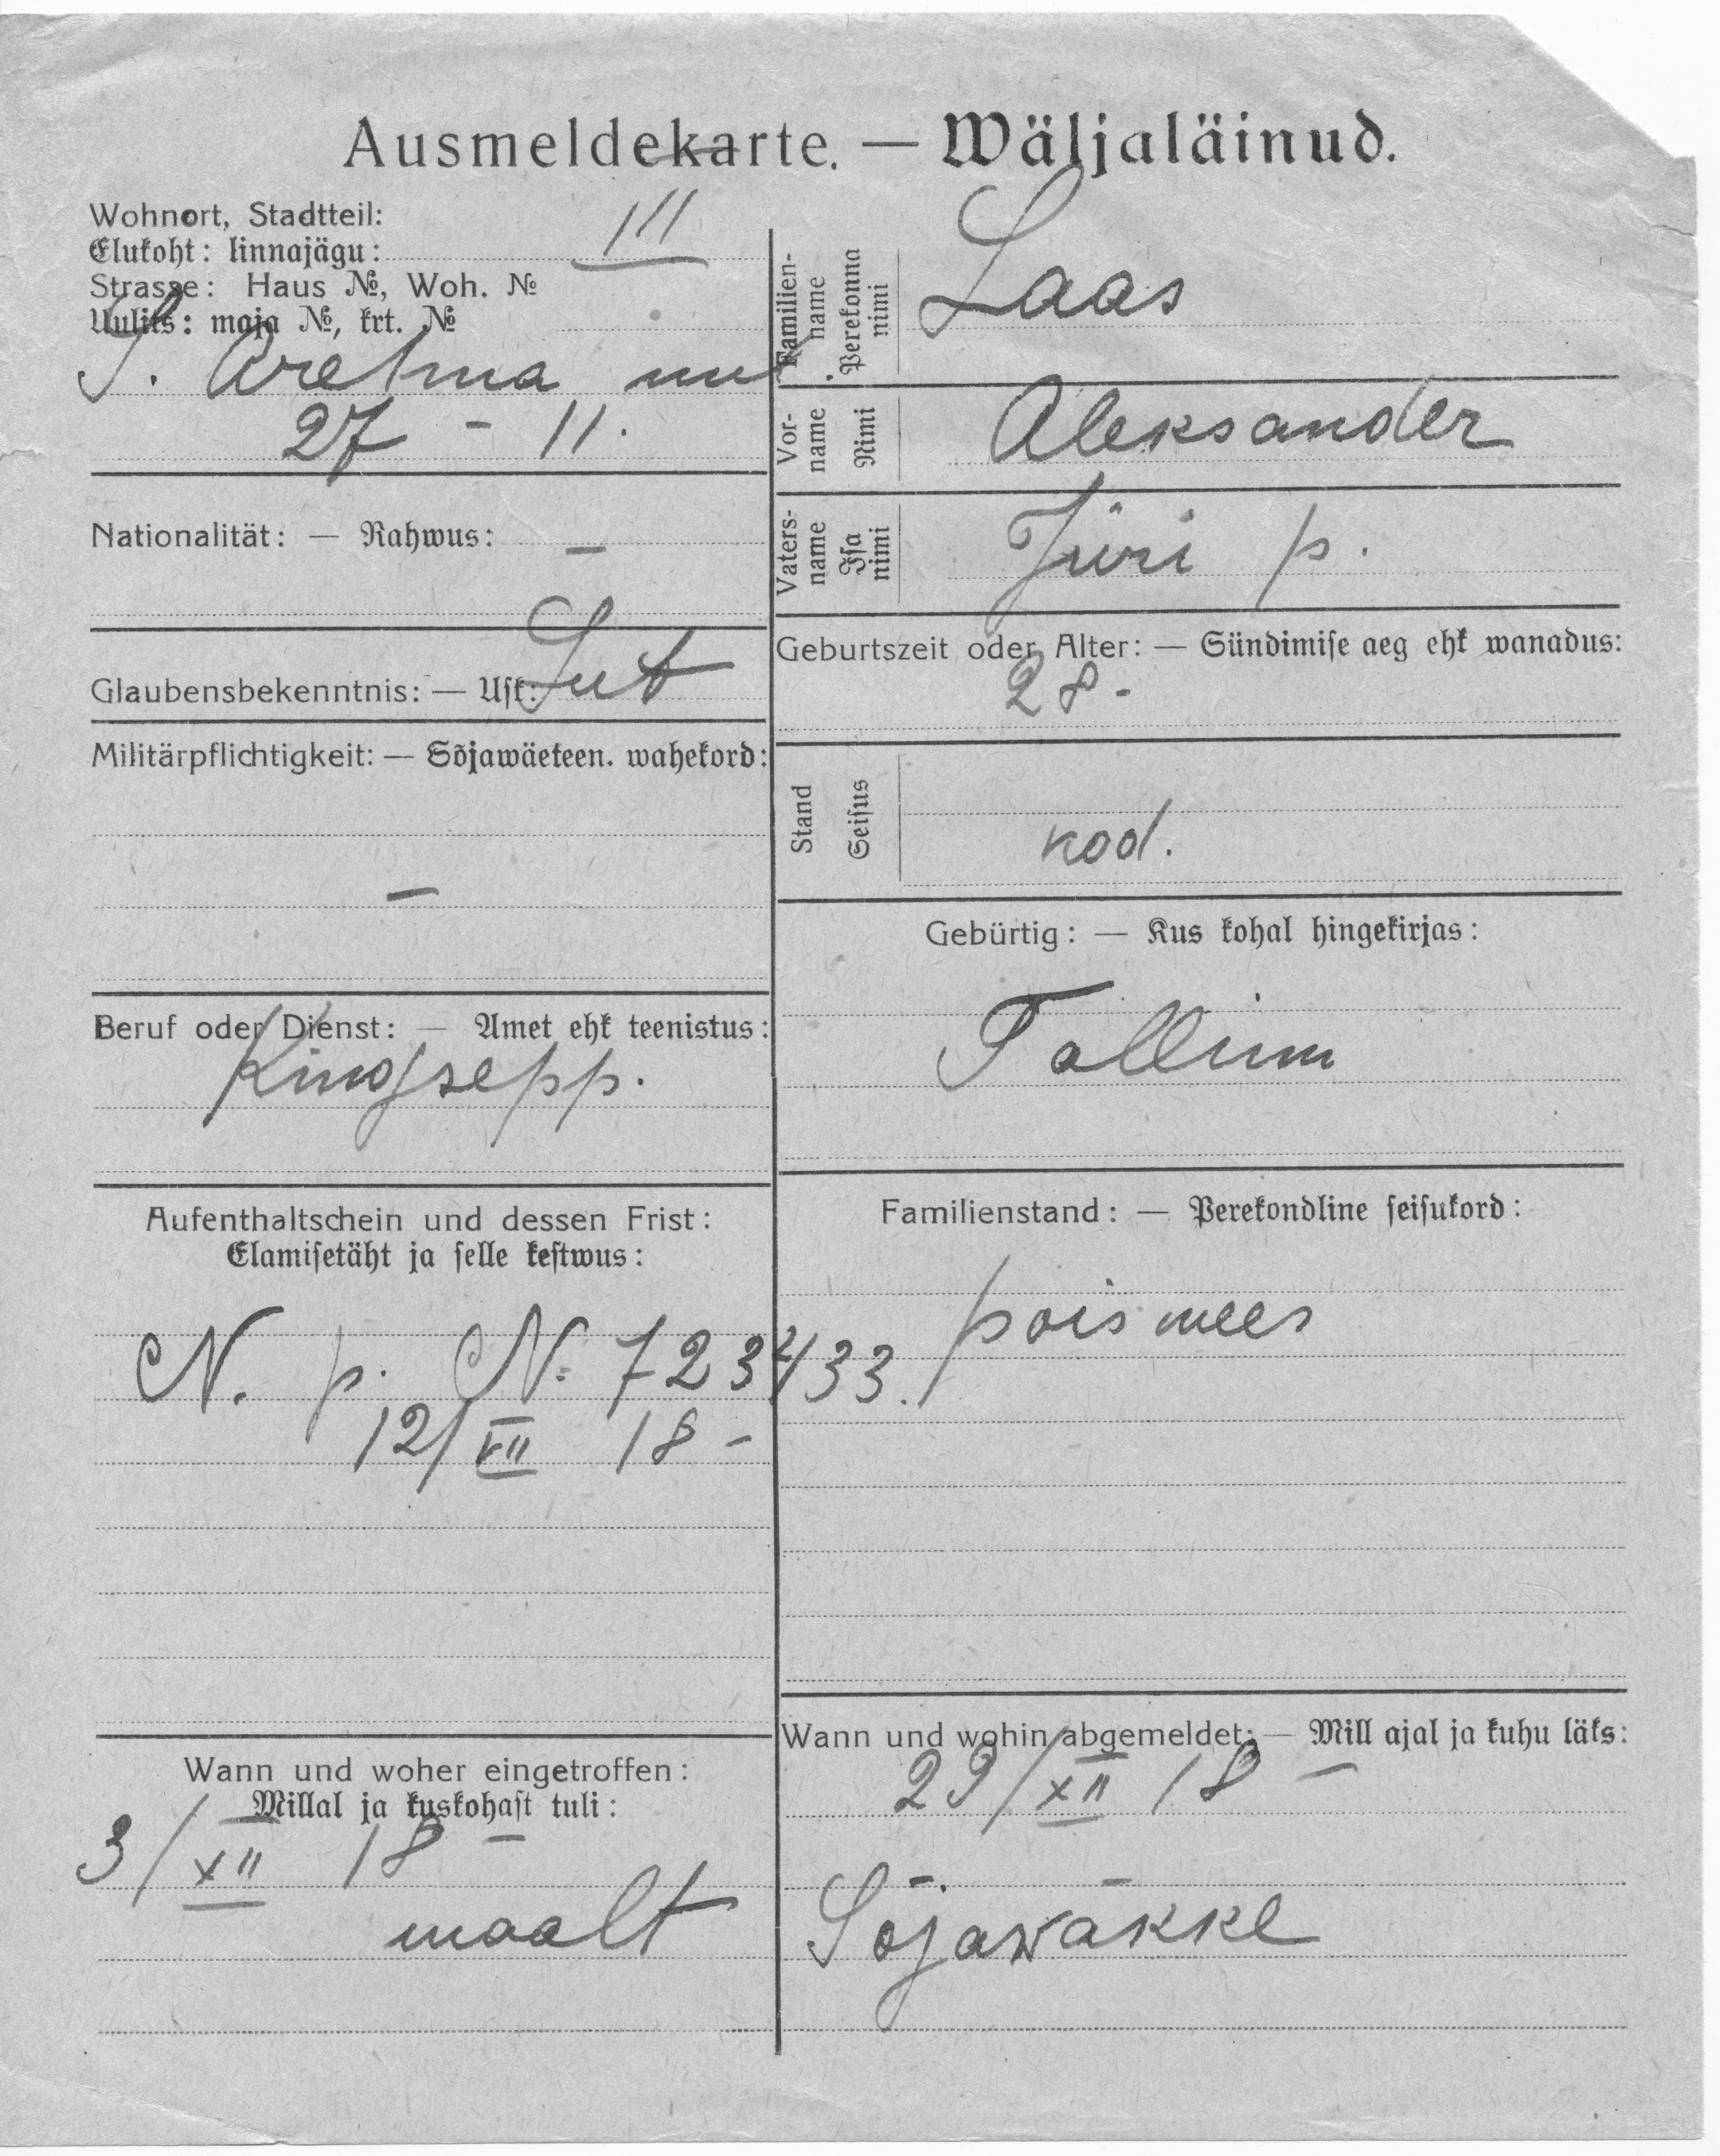 Ausmeldekarte. — Wäljaläinud.
Wohnort, Stadtteil:
Elukoht: linnajägu: III
Strasse: Haus №, Woh. №
Uulits: maja №, krt. №
S.
27 - 11.
Nationalität: — Rahwus: —
Glaubensbekenntnis: — Usk: Lut
Militärpflichtigkeit: — Sõjawäeteen. wahekord:
—
Beruf oder Dienst: — Amet ehk teenistus:
Kingsepp.
Aufenthaltschein und dessen Frist:
Elamisetäht ja selle kestwus:
N. p. N: 723433.
12/VII 18 -
Wann und woher eingetroffen:
Millal ja kuskohast tuli:
3/XII 18 —
maalt
Familien-
name
Perekonna
nimi
Laas
Vor-
name
Nimi
Aleksander
Vaters-
name
Isa
nimi
Jüri p.
Geburtszeit oder Alter: — Sündimise aeg ehk wanadus:
28 -
Stand
Seisus
kod.
Gebürtig: — Kus kohal hingekirjas:
Tallinn
Familienstand: — Perekondline seisukord:
poismees
Wann und wohin abgemeldet: — Mill ajal ja kuhu läks:
29/XII 18 —
Sõjawäkke